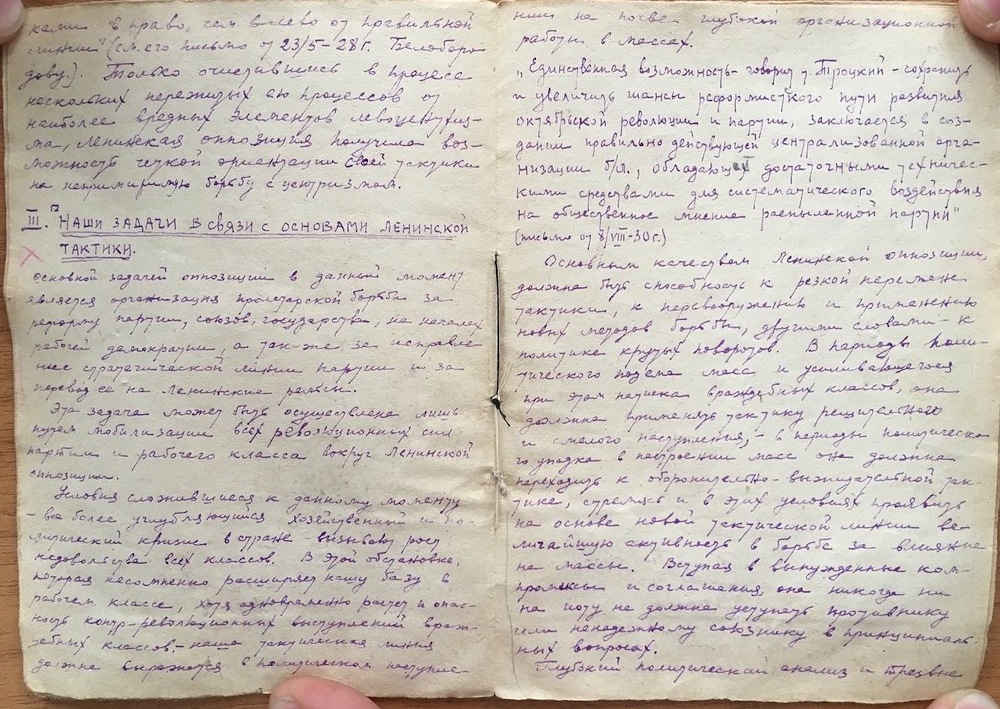 ками в право, чем влево от правильной
линии" (см. его письмо от 23/5-28 г. Белоборо-
дову.). Только очистившись в процессе
нескольких пережитых ею процессов от
наиболее вредных элементов левоцентриз-
ма, Ленинская оппозиция получила воз-
можность четкой ориентации своей тактики
на непримиримую борьбу с центризмом.
III. Наши задачи в связи с основами ленинской
тактики.
Основной задачей оппозиции в данный момент
является организация пролетарской борьбы за
реформу партии, союзов, государства, на началах
рабочей демократии, а так-же за исправле-
ние стратегической линии партии и за
перевод ее на Ленинские рельсы.
Эта задача может быть осуществлена лишь
путем мобилизации всех революционных сил
партии и рабочего класса вокруг Ленинской
оппозиции.
Условия сложившиеся к данному моменту
- все более углубляющийся хозяйственный и по-
литический кризис в стране - вызывают рост
недовольства всех классов. В этой обстановке,
которая несомненно расширяет нашу базу в
рабочем классе, хотя одновременно растет и опас-
ность контр-революционных выступлений враж-
дебных классов, - наша тактическая линия
должна выражаться в политическом наступле-
нии на почве глубокой организационной
работы в массах.
"Единственная возможность - говорит т. Троцкий - сохранить
и увеличить шансы реформистского пути развития
октябрьской революции и партии, заключается в соз-
дании правильно действующей централизованной орга-
низации б/л., обладающей достаточными техничес-
кими средствами для систематического воздействия
на общественное мнение распыленной партии"
(письмо от 8/VIII-30 г.)
Основным качеством Ленинской оппозиции,
должна быть способность к резкой перемене
тактики, к перевооружению и применению
новых методов борьбы, другими словами - к
политике крутых поворотов. В периоды поли-
тического подъема масс и усиливающегося
при этом натиска враждебных классов, она
должна применять тактику решительного
и смелого наступления, - в периоды политическо-
го упадка в настроении масс она должна
переходить к оборонительно-выжидательной так-
тике, стремясь и в этих условиях проявить
на основе новой тактической линии ве-
личайшую активность в борьбе за влияние
на массы. Вступая в вынужденные ком-
промиссы и соглашения, она никогда ни
на иоту не должна уступать противнику
или ненадежному союзнику в принципиаль-
ных вопросах.
Глубокий политический анализ и трезвые